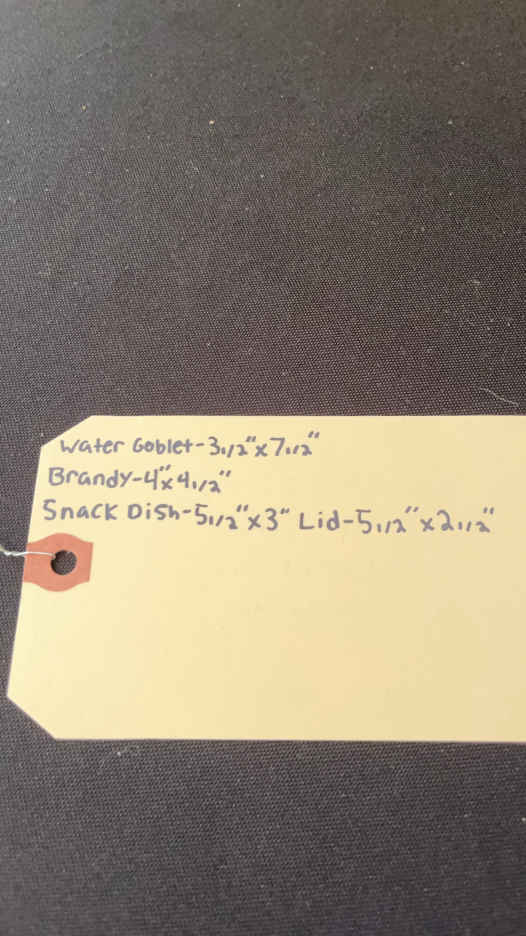 Water Goblet-3 1/2"x7 1/2"
Brandy-4"x4 1/2"
Snack Dish-5 1/2"x3" Lid-5 1/2"x2 1/2"